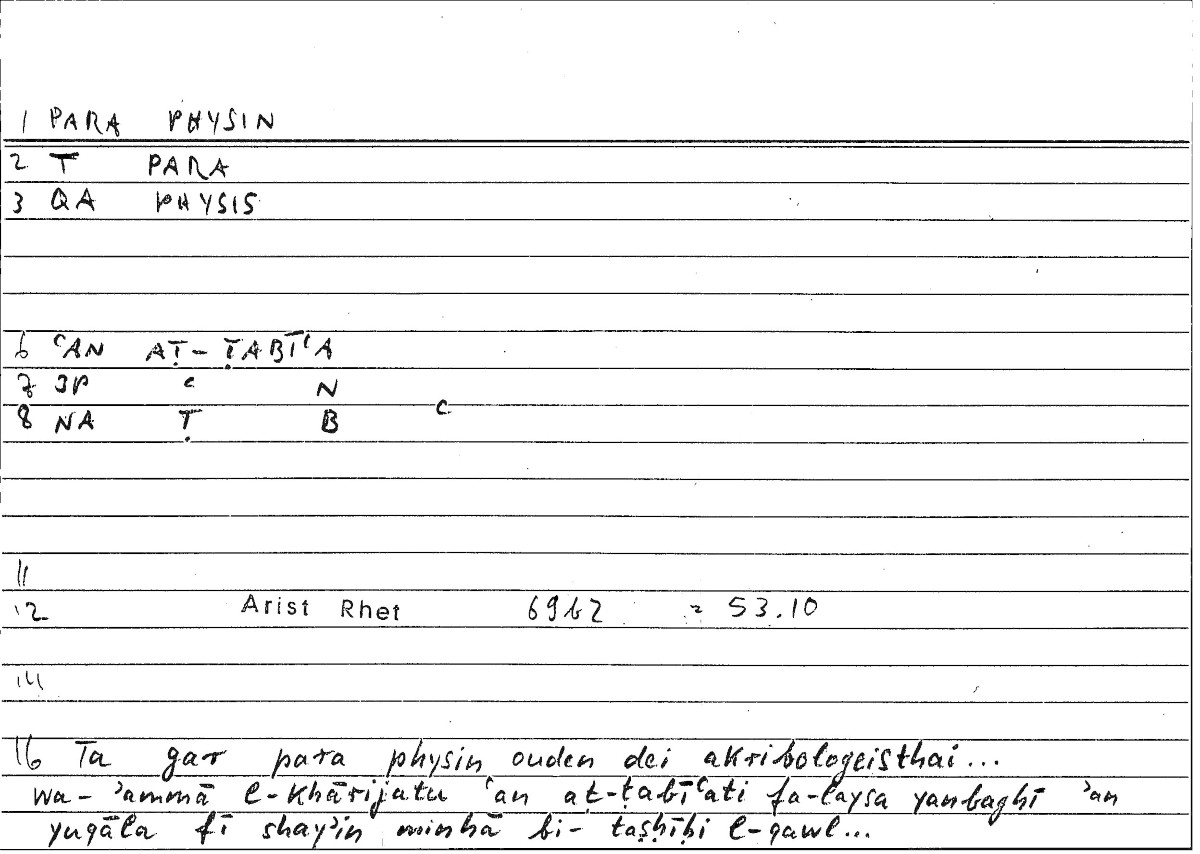 1 PARA PHYSIN
2 T PARA
3 QA PHYSIS
6 ʿAN AṬ-ṬABĪʿA
7 3P ʿ N
8 NA Ṭ B ʿ
11
12 Arist Rhet 69b2 = 53.10
14
16 Ta gar para physin ouden dei akribologeisthai...
wa-ʾammā l-khārijatu ʿan aṭ-ṭabīʿati fa-laysa yanbaghī ʾan
yuqāla fī shayʾin minhā bi-taṣḥīḥi l-qawl...